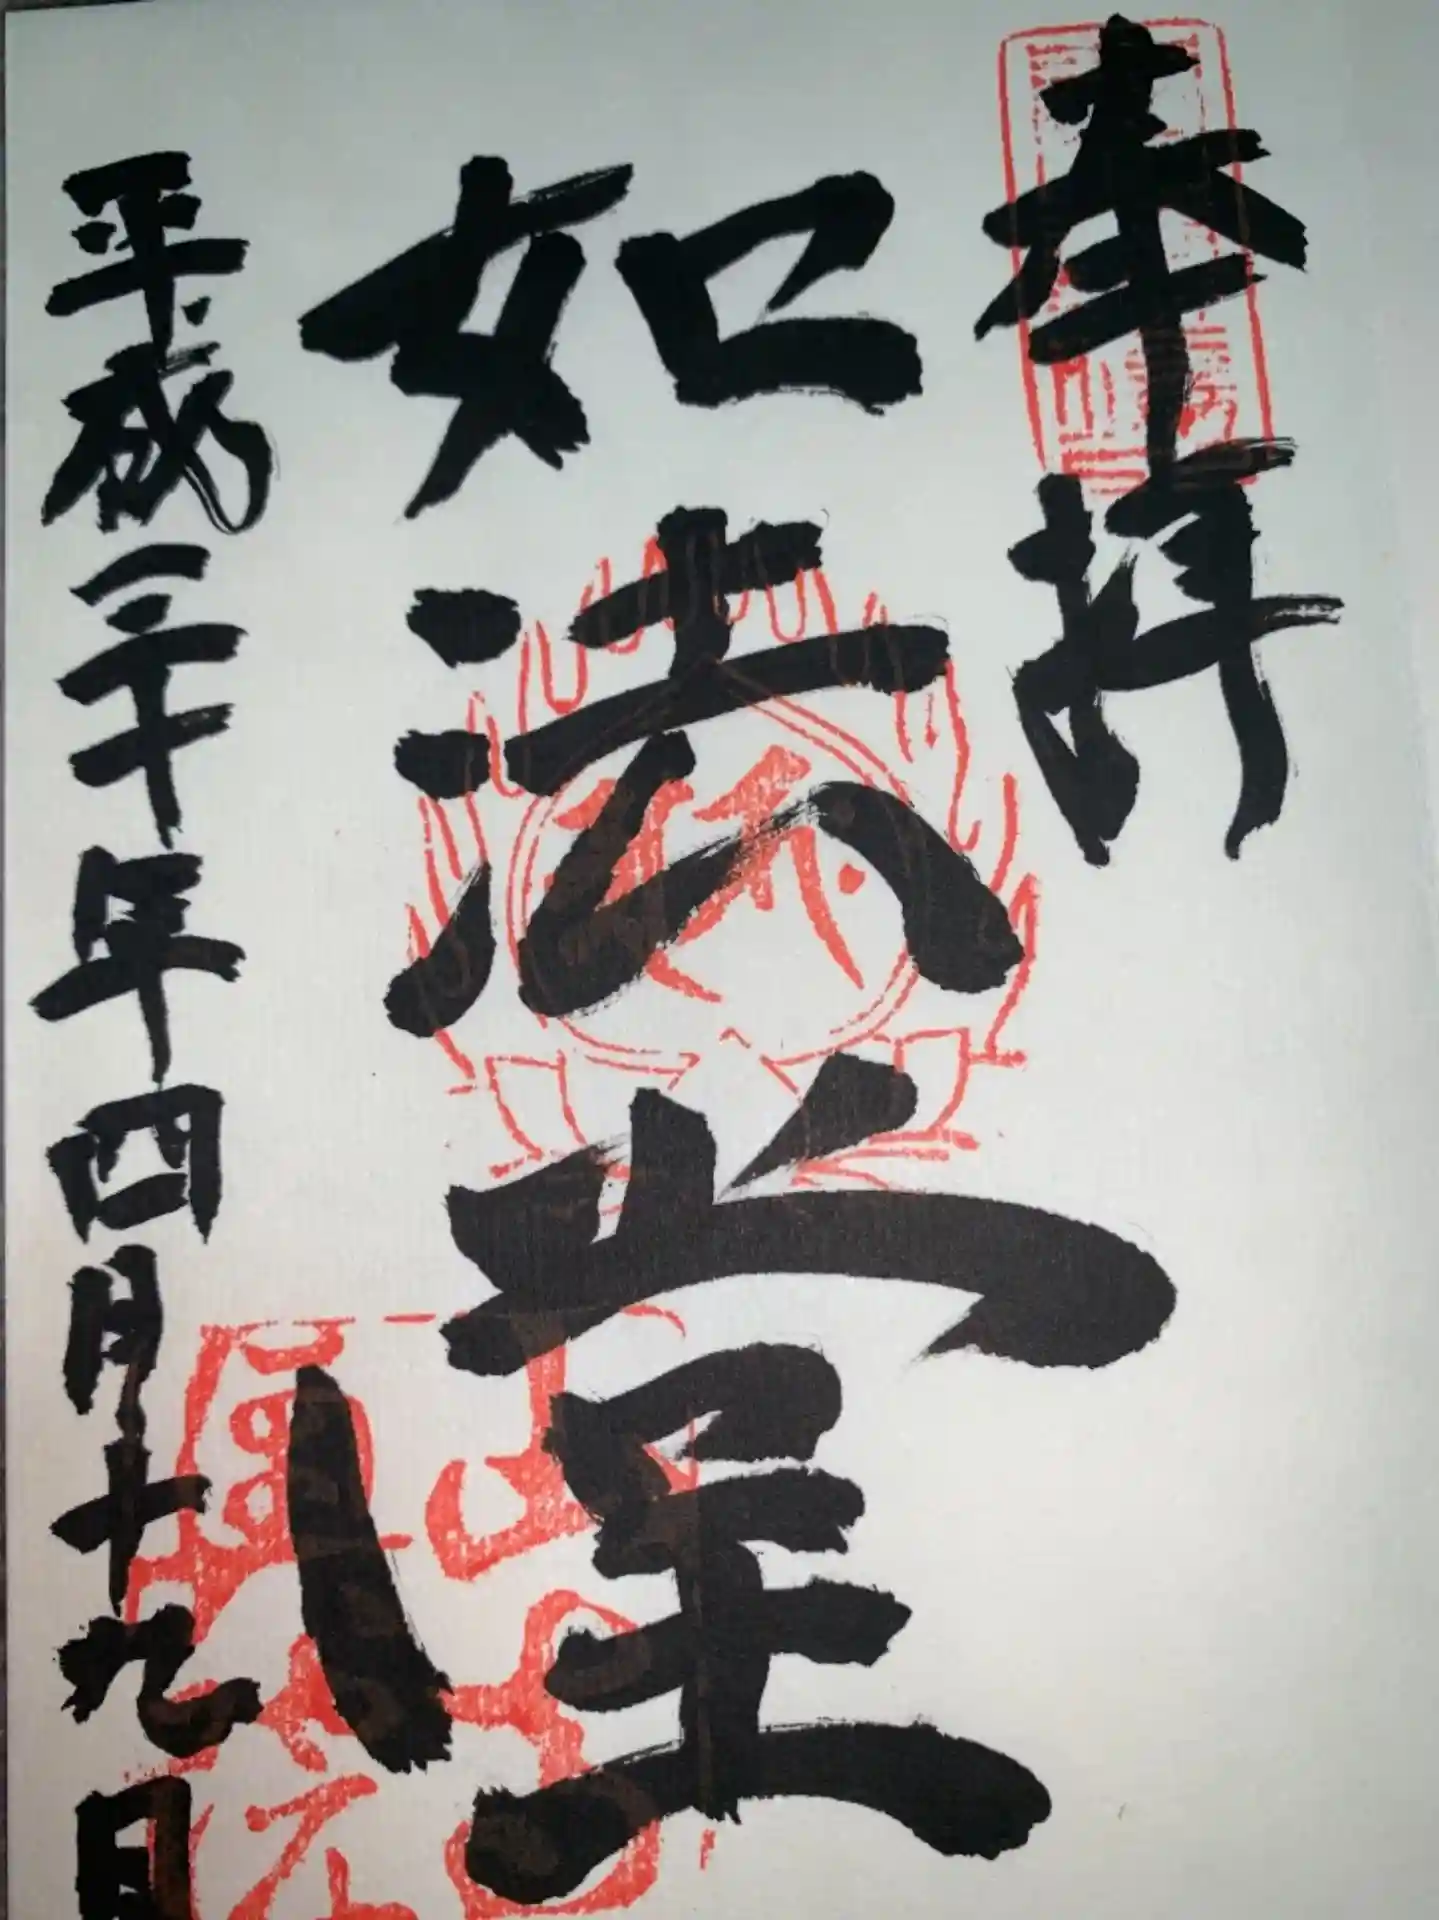 奉拝
如法堂
平成三十年四月十九日